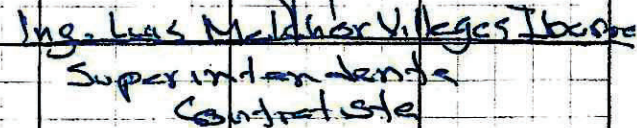 Ing. Luis Melchor Villegas Ibarra
Superintendente
Contratista